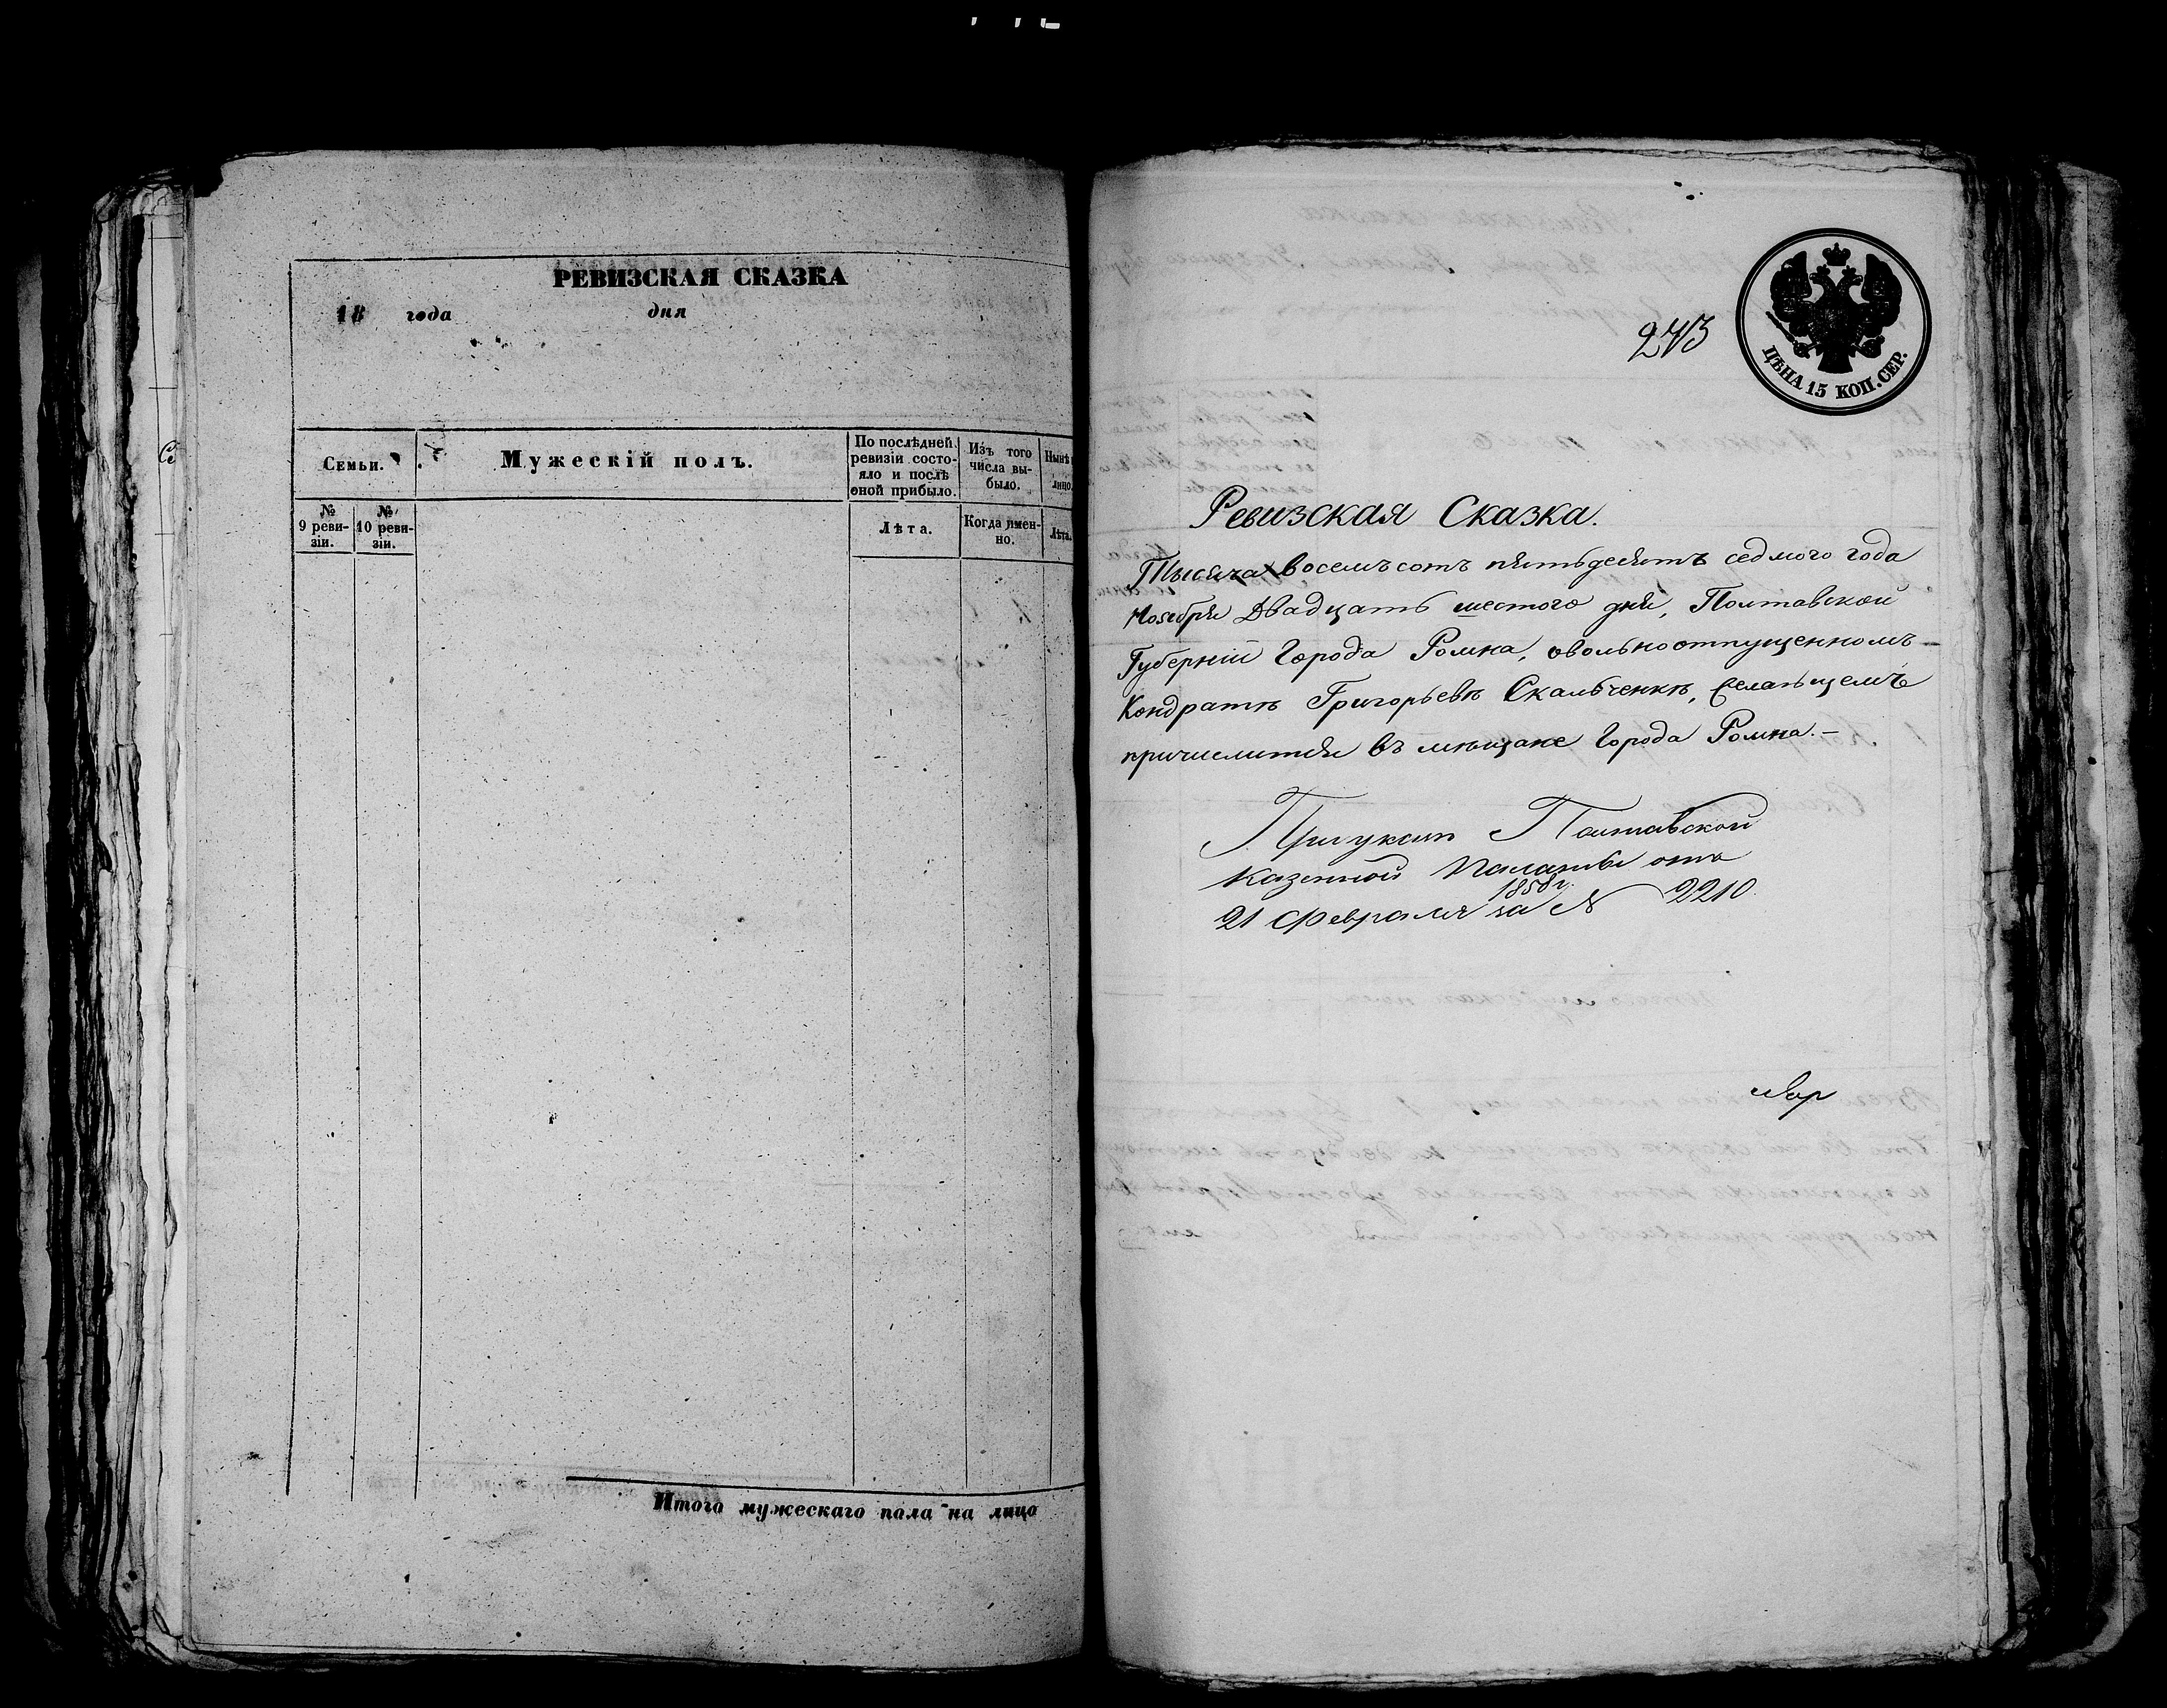 РЕВИЗСКАЯ СКАЗКА
18 года дня
Семьи.
Мужескій полъ.
По послѣдней ревизіи состо-
яло и послѣ
оной прибыло.
Изъ того
числа вы-
было.
Нынѣ
лицо.
№
9 реви-
зіи.
№
10 реви-
зіи.
Лѣта.
Когда имен-
но.
Лѣта.
Итого мужескаго пола на лицо
243
ЦѢНА 15 КОП. СЕР.
Ревизская Сказка.
Тысяча восемъсотъ пятьдесятъ седмого года
Ноября Двадцать шестого дня, Полтавской
Губерніи Города Ромна, овольноотпущенномъ
Кондратѣ Григорьевѣ Скальченкѣ,
причислится въ мѣщане Города Ромна.-
При указѣ Полтавской
Казенной Палаты отъ
1858 г.
21 Февраля за № 2210